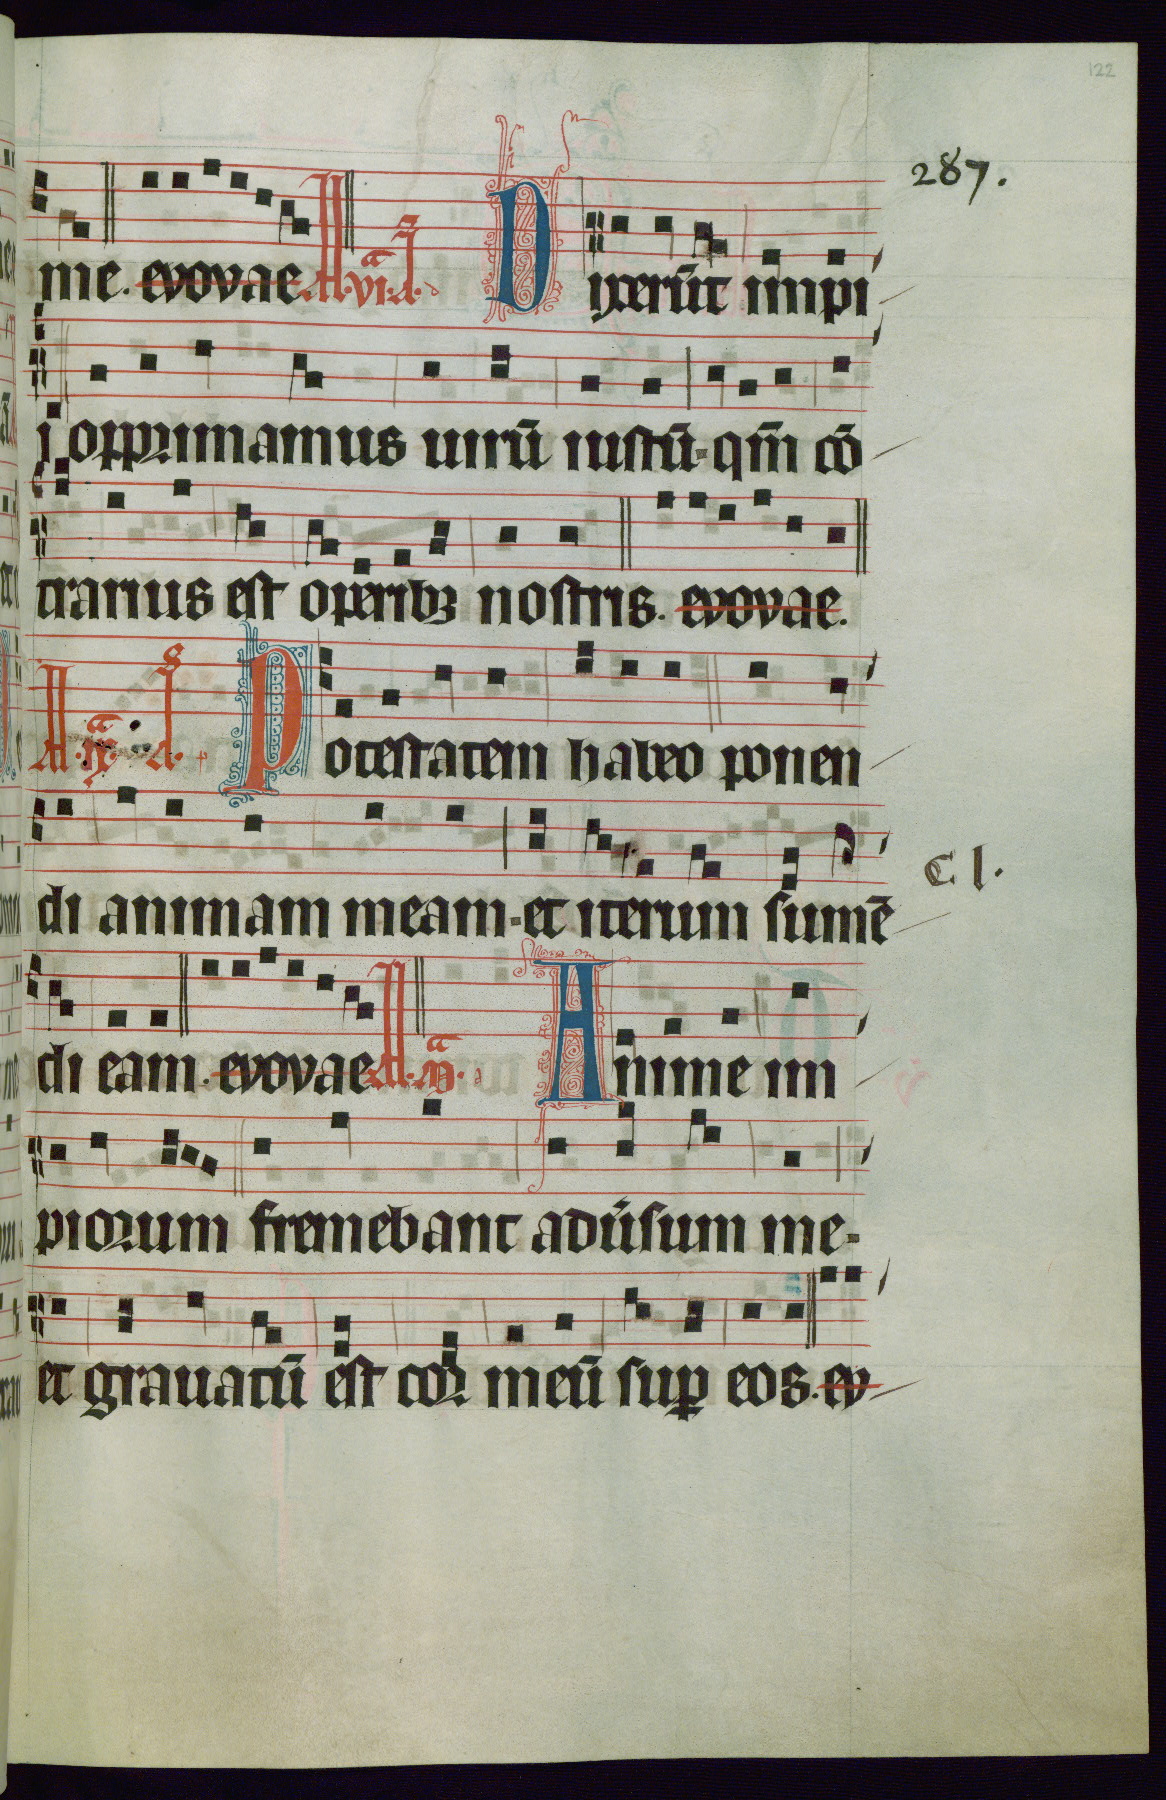 122
287.
me. evovae A. vi. a. Dixerūt impi
j opprimamus uirū iustū. qm̄ cō
trarius est operibꝫ nostris. evovae.
A. a. Potestatem habeo ponen
di animam meam. et iterum sumē
C l.
di eam. evovae A. a. Anime im
piorum fremebant adūsum me.
et grauatū est cor meū suꝑ eos. ev